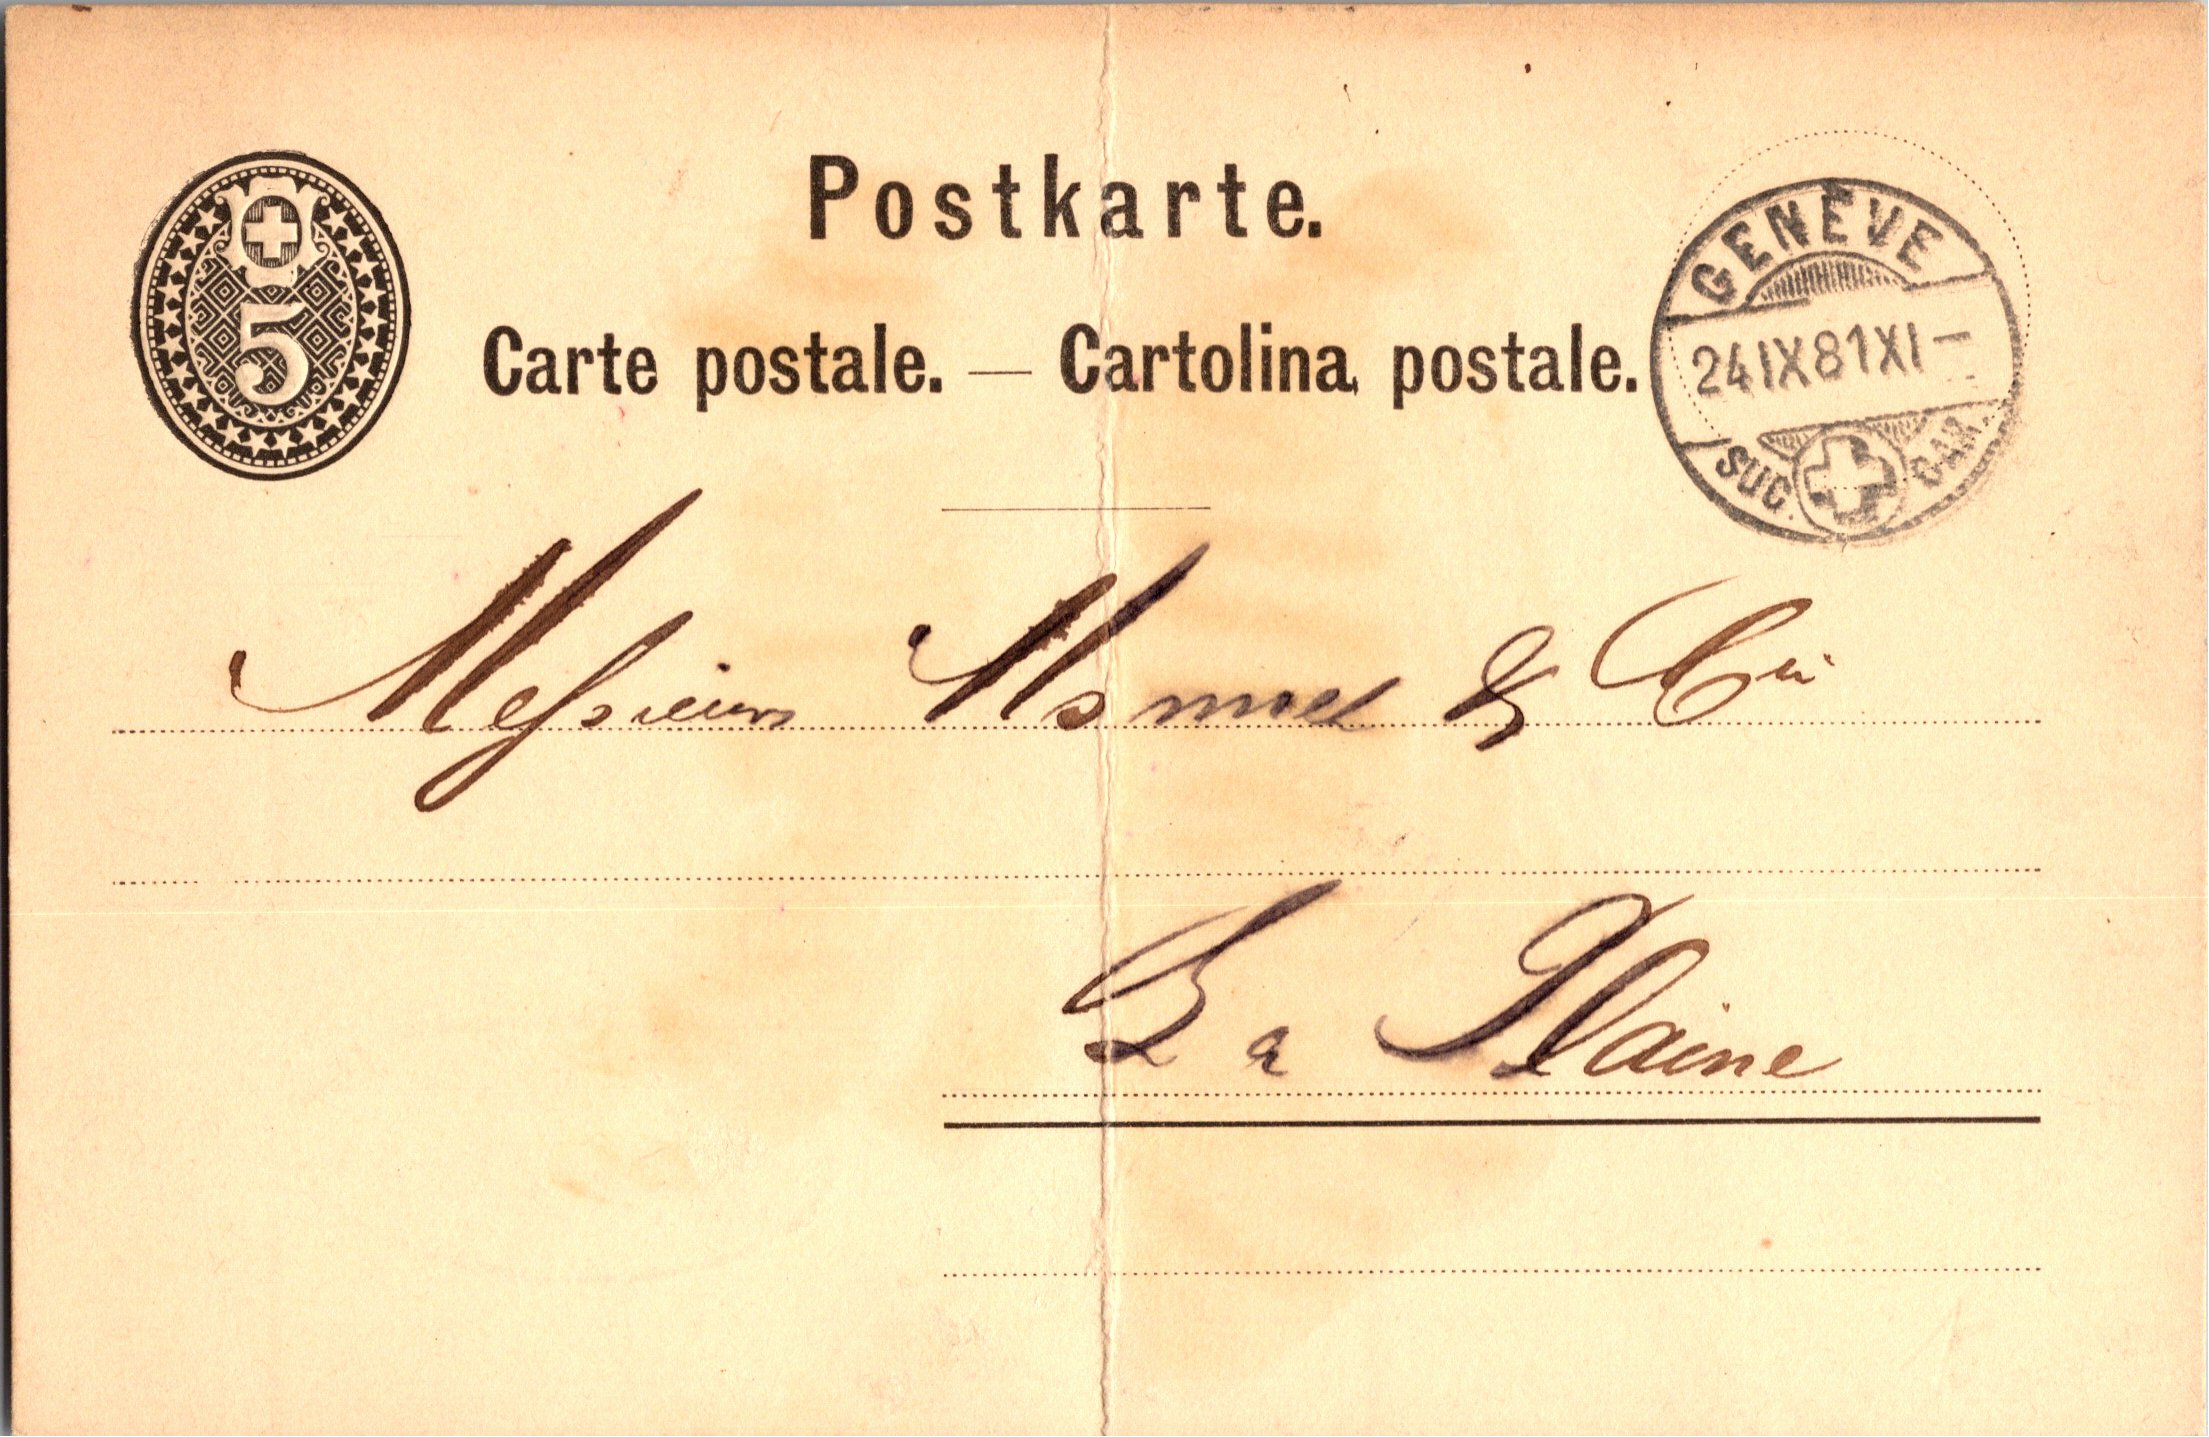 5
Postkarte.
Carte postale. — Cartolina postale.
GENÈVE
24 IX 81 XI –
SUC. CAR.
Messieurs & Cie
La Plaine